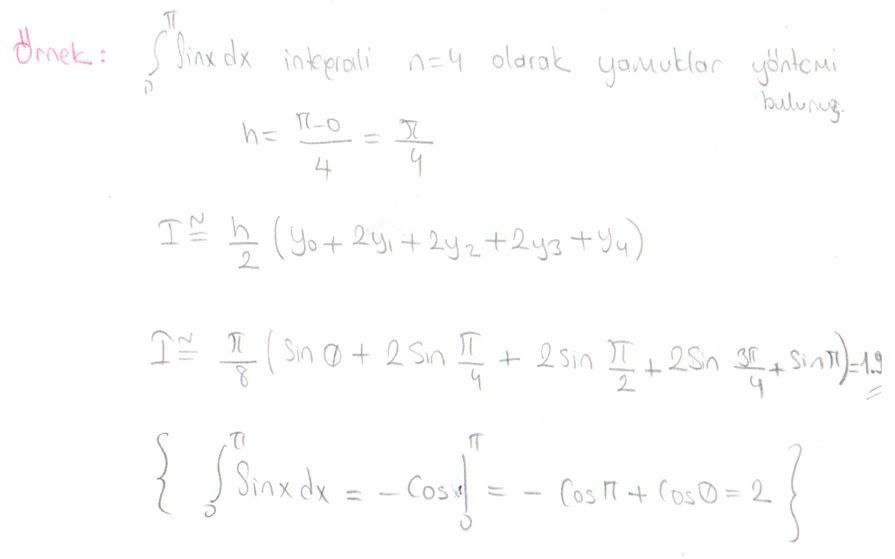 Örnek: ∫₀^π Sinx dx integrali n=4 olarak yamuklar yöntemi
bulunuz.
h= (π-0)/4 = π/4
I ≅ h/2 (y₀ + 2y₁ + 2y₂ + 2y₃ + y₄)
I ≅ π/8 (Sin 0 + 2 Sin π/4 + 2 sin π/2 + 2Sin 3π/4 + Sin π) = 1.9
{ ∫₀^π Sinx dx = - Cosx |₀^π = - Cos π + Cos 0 = 2 }